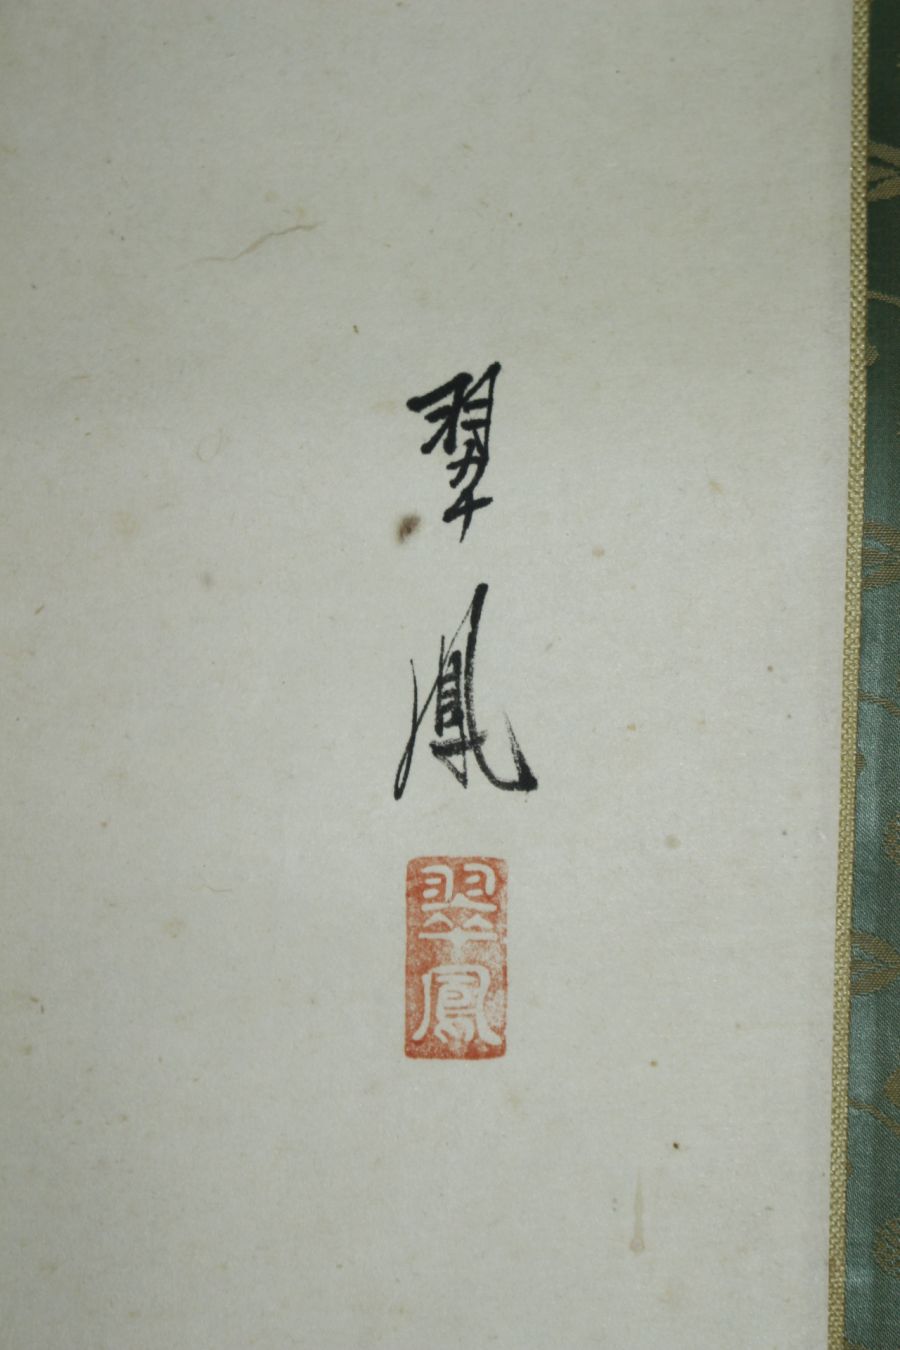 翠鳳
翠鳳